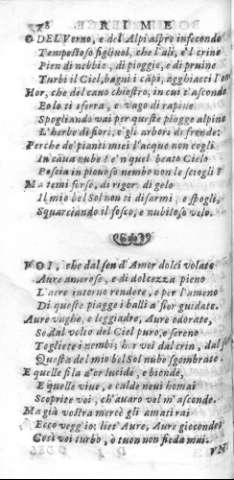 78 RIME
O DEL Verno, e del'Alpi aspro infecondo
Tempestoso figliuol, che l'ali, e'l crine
Pien di nebbie, di pioggie, e di pruine
Turbi il Ciel, bagni i cãpi, agghiacci l'on
Hor, che del cano chiostro, in cui t'ascondo
Eolo ti sferra, e vago di rapine
Spogliando vai per queste piagge alpine
L'herbe di fiori, e gli arbori di fronde:
Perche de' pianti miei l'acque non cogli
In caua nube? e'n quel beato Cielo
Poscia in piouoso nembo non le sciogli?
Ma temi forse, di rigor, di gelo
Il mio bel Sol non ti disarmi, e spogli,
Squarciando il fosco, e nubiloso velo.
VOI, che dal sen d'Amor dolci volate
Aure amorose, e di dolcezza pieno
L'aere intorno rendete, e per l'ameno
Di queste piagge i balli a' fior guidate.
Aure vaghe, e leggiadre, Aure odorate,
So dal volto del Ciel puro, e sereno
Togliete i nembi, hor voi dal crin, dal
Questa del mio bel Sol nube sgombrate.
E quelle fila d'or lucide, e bionde,
E quelle viue, e calde neui homai
Scoprite voi, ch'auaro vel m'asconde.
Ma già vostra mercè gli amati rai
Ecco veggio: liet'Aure, Aure gioconde
Così voi turbo, ò tuon non fieda mai.